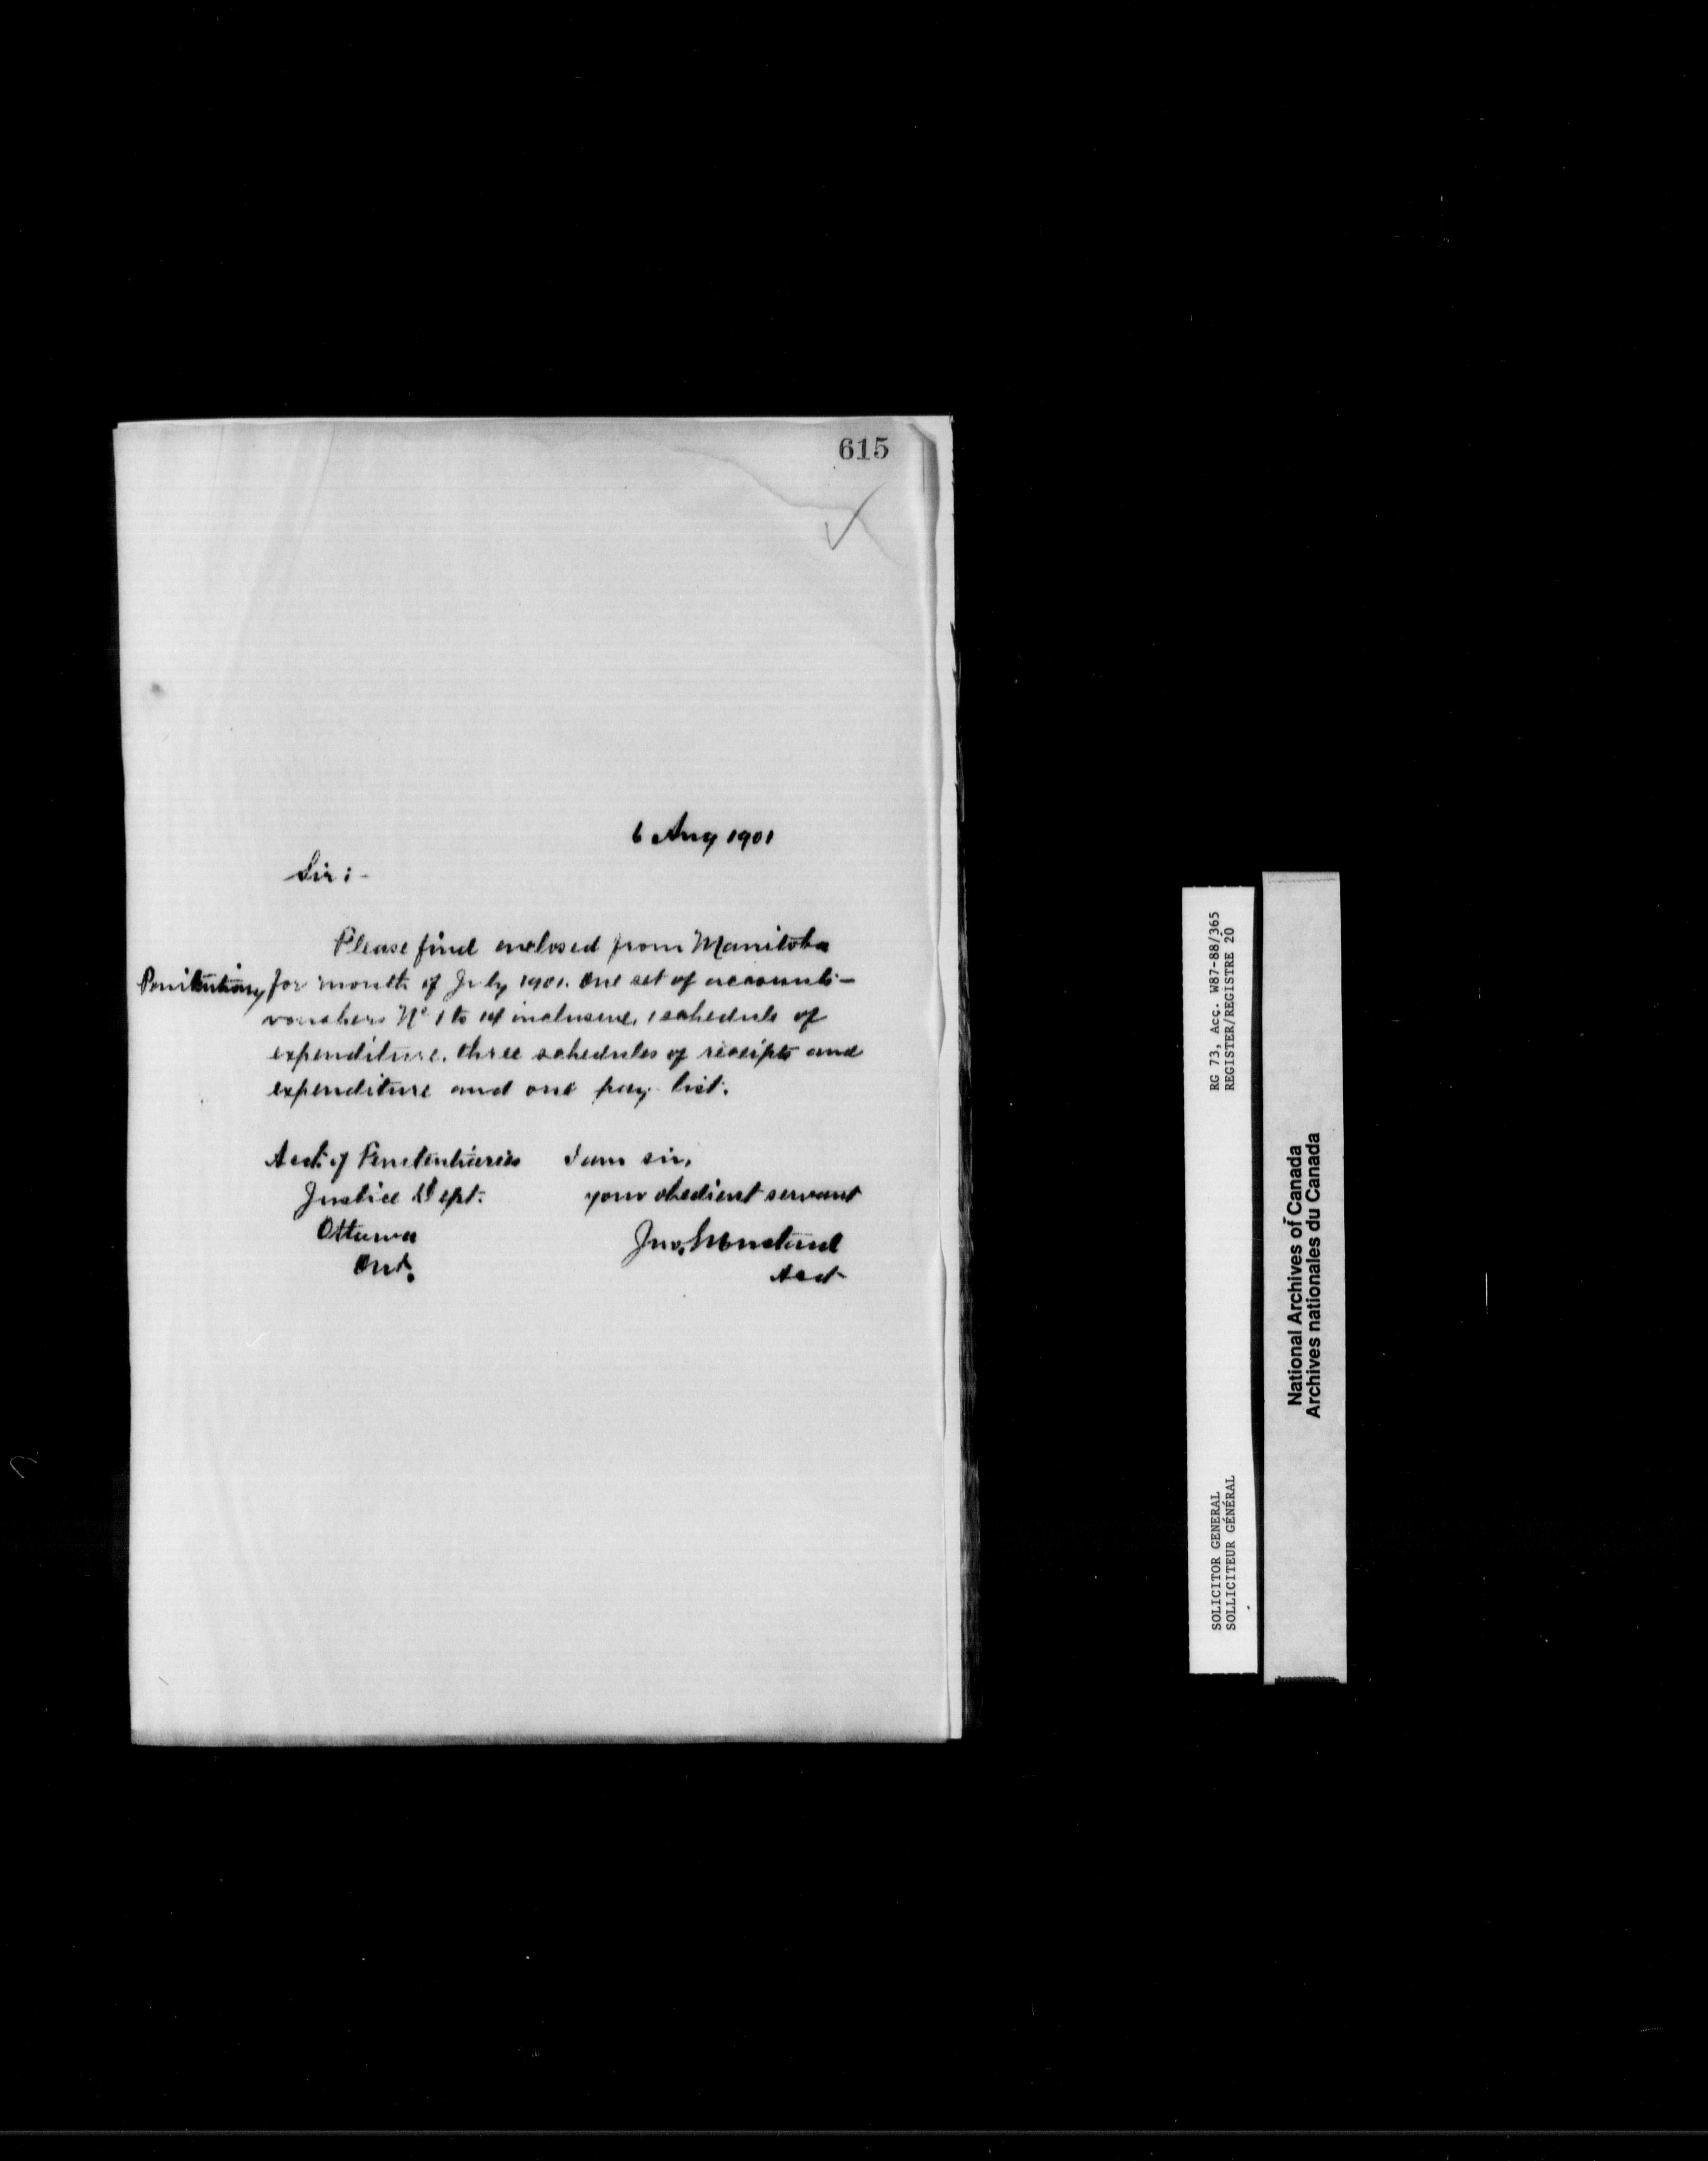 615
6 Aug 1901
Sir:-
Please find enclosed from Manitoba
Penitentiary for month of July 1901. One set of accounts-
vouchers No. 1 to inclusive, 1 schedule of
expenditure, three schedules of receipts and
expenditure and one pay list.
Acct. of Penitentiaries
Justice Dept.
Ottawa
Ont.
I am sir,
your obedient servant
Jno.
Acct
RG 73, Acc. W87-88/365
REGISTER/REGISTRE 20
SOLICITOR GENERAL
SOLLICITEUR GÉNÉRAL
National Archives of Canada
Archives nationales du Canada